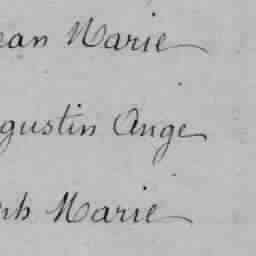 ean Marie
gustin Ange
ph Marie